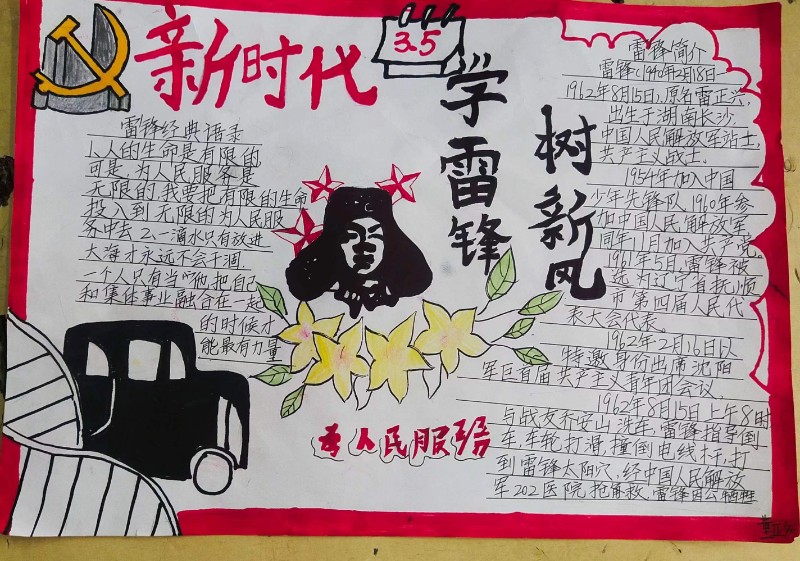 新时代
3.5
学雷锋
树新风
雷锋经典语录
1.人的生命是有限的
可是,为人民服务是
无限的,我要把有限的生命
投入到无限的为人民服
务中去 2.一滴水只有放进
大海才永远不会干涸
一个人只有当他把自己
和集体事业融合在一起
的时候才
能最有力量
为人民服务
雷锋简介
雷锋(1940年12月18日—
1962年8月15日),原名雷正兴,
出生于湖南长沙,
中国人民解放军站士,
共产主义战士.
1954年加入中国
少年先锋队,1960年参
加中国人民解放军
同年11月加入共产党。
1961年5月,雷锋被
选为辽宁省抚顺
市第四届人民代
表大会代表.
1962年2月16日以
特邀身份出席沈阳
军区首届共产主义青年团会议.
1962年8月15日上午8时
与战友乔安山洗车,雷锋指导倒
车,车轮打滑,撞倒电线杆,打
到雷锋太阳穴,经中国人民解放
军202医院抢救,雷锋因公牺牲